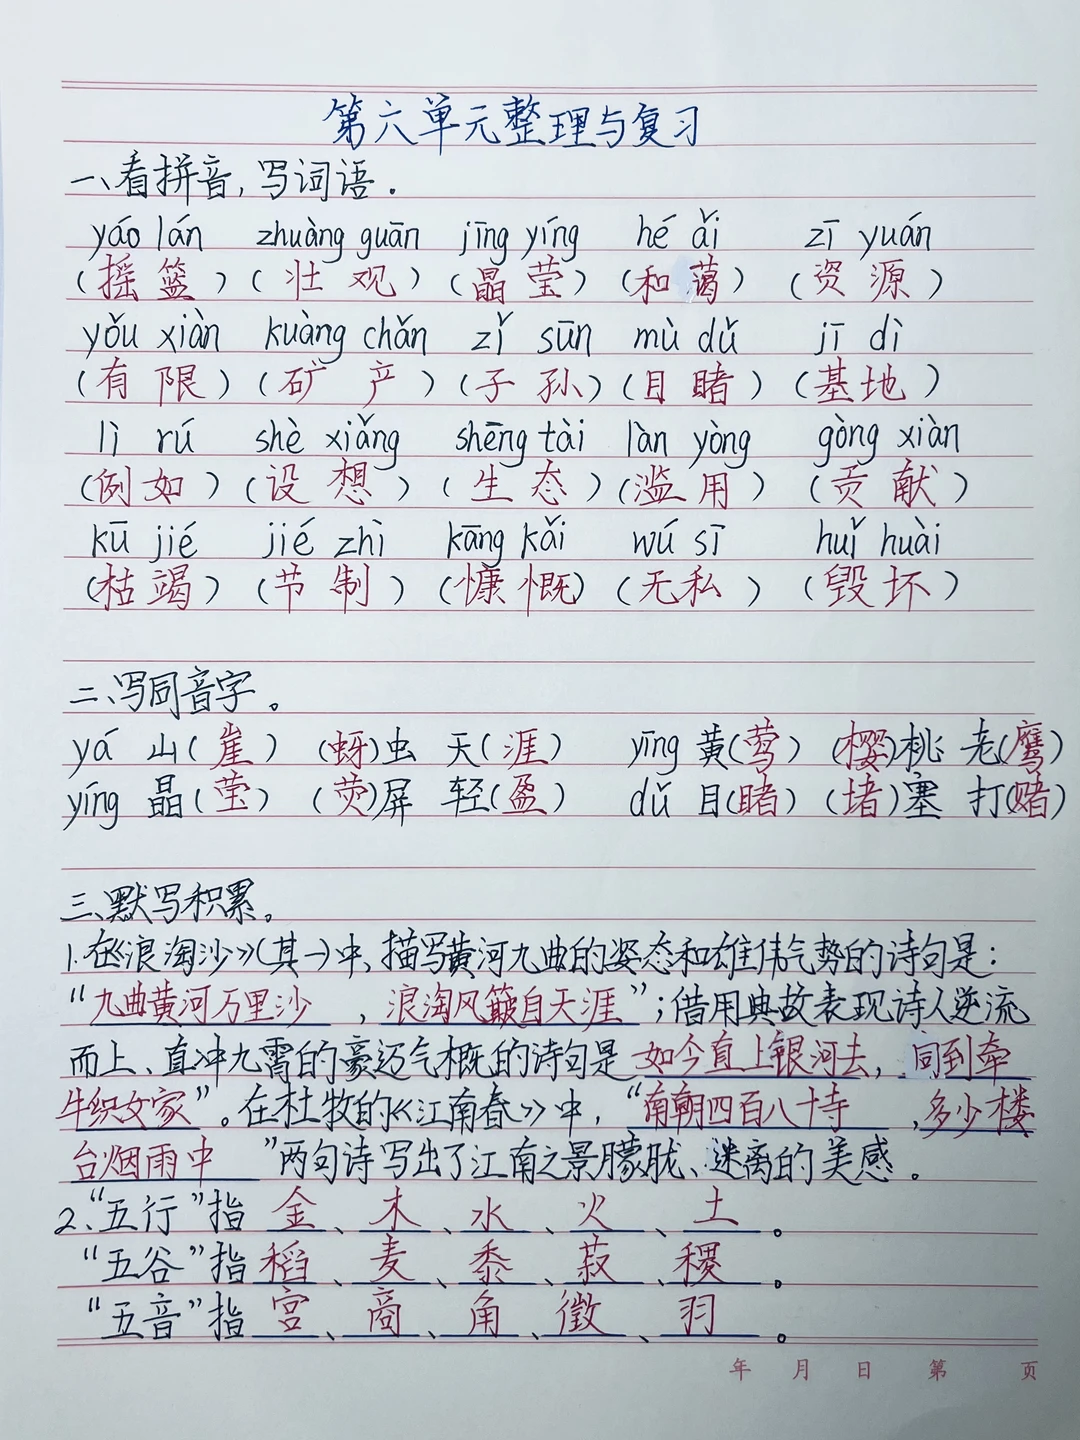 第六单元整理与复习
一、看拼音,写词语。
yáo lán zhuàng guān jīng yíng hé ǎi zī yuán
(摇篮)(壮观)(晶莹)(和蔼)(资源)
yǒu xiàn kuàng chǎn zǐ sūn mù dǔ jī dì
(有限)(矿产)(子孙)(目睹)(基地)
lì rú shè xiǎng shēng tài làn yòng gòng xiàn
(例如)(设想)(生态)(滥用)(贡献)
kū jié jié zhì kāng kǎi wú sī huǐ huài
(枯竭)(节制)(慷慨)(无私)(毁坏)
二、写同音字。
yá 山(崖) (蚜)虫 天(涯) yīng 黄(莺) (樱)桃 老(鹰)
yíng 晶(莹) (荧)屏 轻(盈) dǔ 目(睹) (堵)塞 打(赌)
三、默写积累。
1.在《浪淘沙》(其一)中,描写黄河九曲的姿态和雄伟气势的诗句是:
“九曲黄河万里沙,浪淘风簸自天涯”;借用典故表现诗人逆流
而上、直冲九霄的豪迈气概的诗句是如今直上银河去,同到牵
牛织女家”。在杜牧的《江南春》中,“南朝四百八十寺,多少楼
台烟雨中”两句诗写出了江南之景朦胧、迷离的美感。
2、“五行”指金、木、水、火、土。
“五谷”指稻、麦、黍、菽、稷。
“五音”指宫、商、角、徵、羽。
年 月 日 第 页